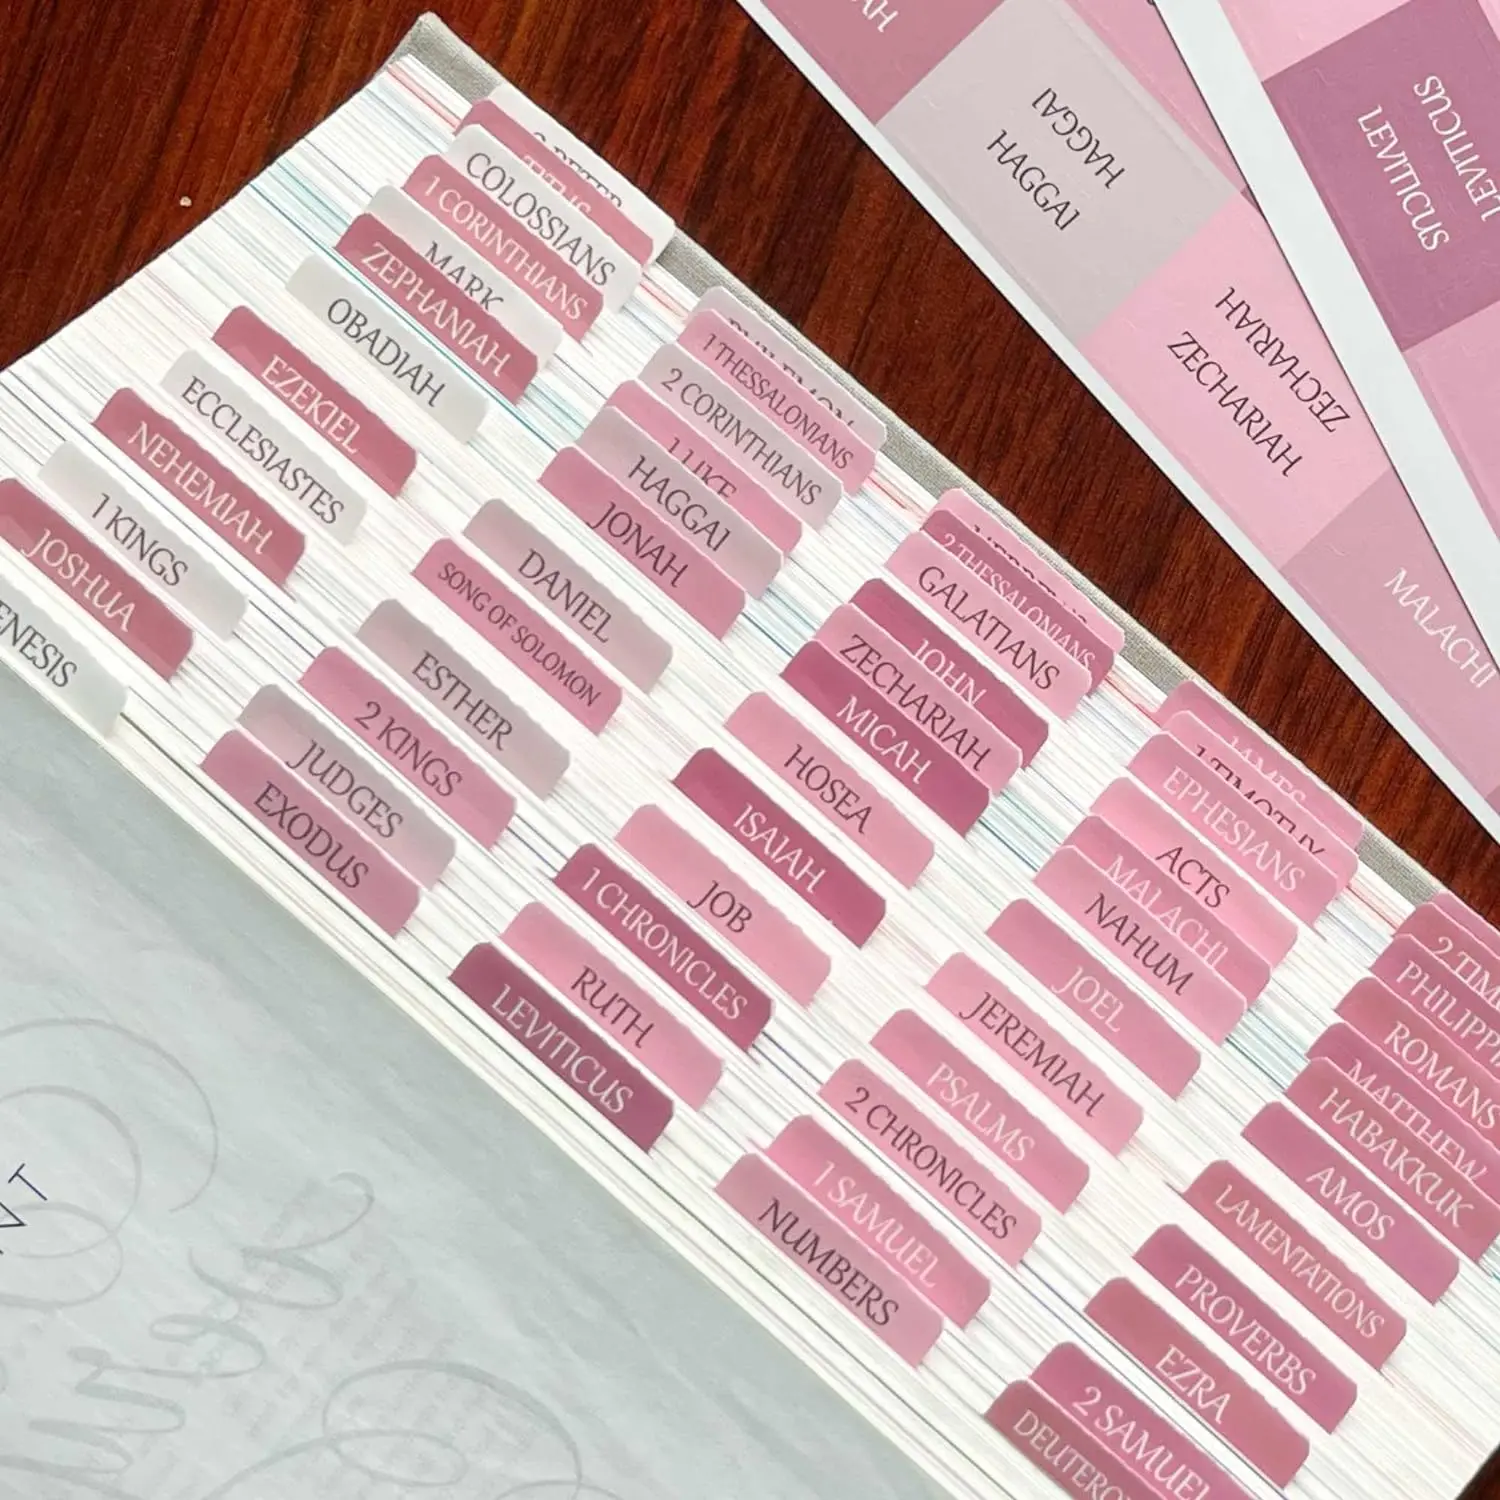 GENESIS
EXODUS
LEVITICUS
NUMBERS
DEUTERO
JOSHUA
JUDGES
RUTH
1 SAMUEL
2 SAMUEL
1 KINGS
2 KINGS
1 CHRONICLES
2 CHRONICLES
EZRA
NEHEMIAH
ESTHER
JOB
PSALMS
PROVERBS
ECCLESIASTES
SONG OF SOLOMON
ISAIAH
JEREMIAH
LAMENTATIONS
EZEKIEL
DANIEL
HOSEA
JOEL
AMOS
OBADIAH
JONAH
MICAH
NAHUM
HABAKKUK
ZEPHANIAH
HAGGAI
ZECHARIAH
MALACHI
MATTHEW
MARK
1 LUKE
JOHN
ACTS
ROMANS
1 CORINTHIANS
2 CORINTHIANS
GALATIANS
EPHESIANS
PHILIPPI
COLOSSIANS
1 THESSALONIANS
2 THESSALONIANS
1 TIMOTHY
2 TIM
TITUS
PHILEMON
JAMES
2 PETER
HAGGAI
HAGGAI
ZECHARIAH
ZECHARIAH
MALACHI
LEVITICUS
LEVITICUS
AH
NT